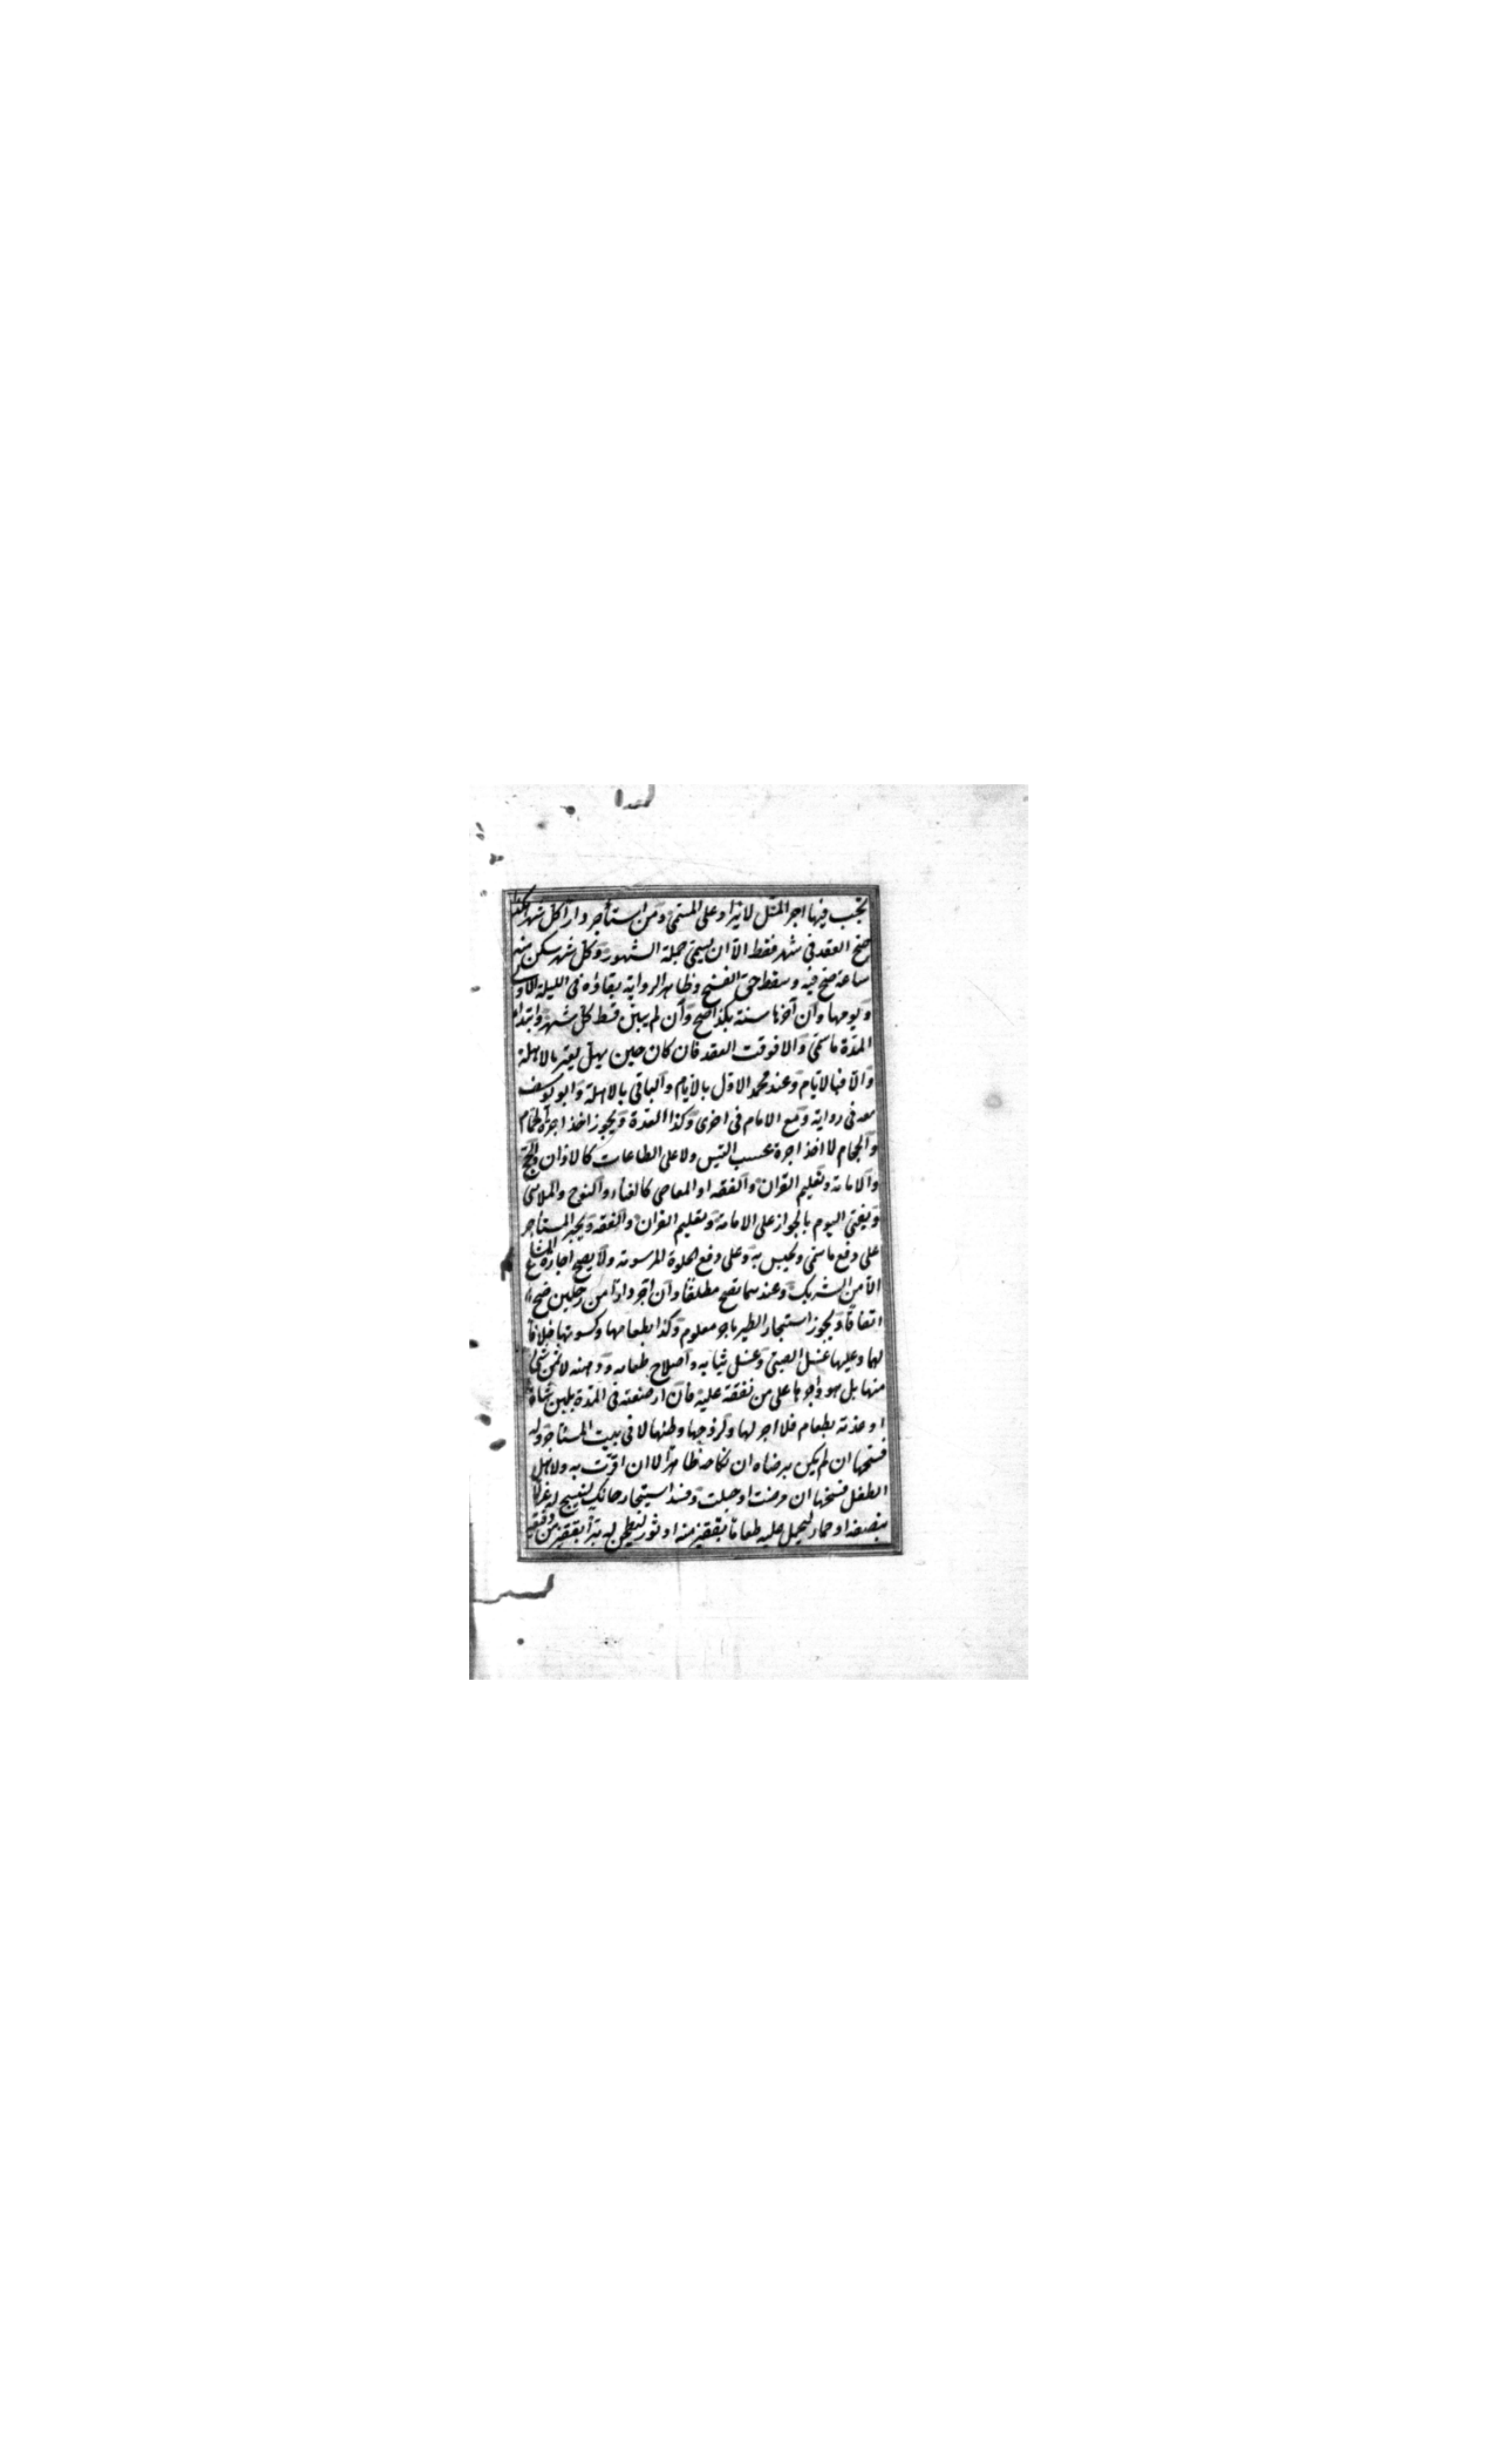 تجب فيها اجر المثل لا يزاد على المسمى ومن استأجر دارا كل شهر بكذا
صح العقد فى شهر فقط الا ان يسمى جملة الشهور وكل شهر سكن منه
ساعة صح فيه وسقط حق الفسخ وظاهر الرواية بقاؤه فى الليلة الاولى
ويومها وان آجرها سنة بكذا صح وان لم يبين قسط كل شهر وابتداء
المدة ما سمى والا فوقت العقد فان كان حين يهل يعتبر بالاهلة
والا فبالايام وعند محمد الاول بالايام والباقى بالاهلة وابو يوسف
معه فى رواية ومع الامام فى اخرى وكذا العدة ويجوز اخذ اجرة الحمام
والحجام لا اخذ اجرة عسب التيس ولا على الطاعات كالاذان والحج
والامامة وتعليم القران والفقه او المعاصى كالغناء والنوح والملاهى
ويفتى اليوم بالجواز على الامامة وتعليم القران والفقه ويجبر المستأجر
على دفع ما سمى ويحبس به وعلى دفع الحلوة المرسومة ولا يصح اجارة المشاع
الا من الشريك وعندهما تصح مطلقا وان اجر دارا من رجلين صح
اتفاقا ويجوز استئجار الظئر باجر معلوم وكذا بطعامها وكسوتها خلافا
لهما وعليها غسل الصبى وغسل ثيابه واصلاح طعامه ودهنه لا ثمن شئ
منها بل هو واجرها على من نفقته عليه فان ارضعته فى المدة بلبن شاة
او غذته بطعام فلا اجر لها ولزوجها وطئها لا فى بيت المستأجر وله
فسخها ان لم يكن برضاه ان نكاحه ظاهرا لا ان اقرت به ولاهل
الطفل فسخها ان مرضت او حبلت وفسد استئجار حائك لينسج له غزلا
بنصفه او حمار ليحمل عليه طعاما بقفيز منه او ثور ليطحن له برا بقفيز من دقيقه